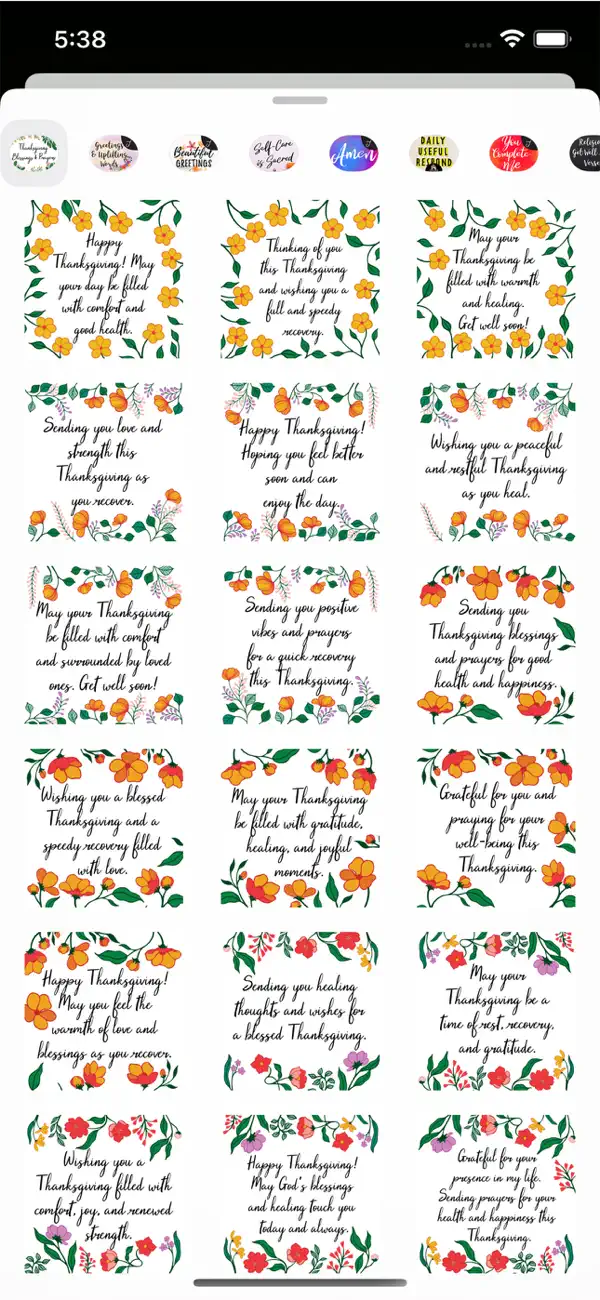 5:38
Thanksgiving
Blessings & Prayers
Greetings
& Uplifting
Words
Beautiful
GREETINGS
Self-Care
is Sacred
Amen
DAILY
USEFUL
RESPOND
You
Complete
Me
Get Well
Verse
Happy
Thanksgiving! May
your day be filled
with comfort and
good health.
Thinking of you
this Thanksgiving
and wishing you a
full and speedy
recovery.
May your
Thanksgiving be
filled with warmth
and healing.
Get well soon!
Sending you love and
strength this
Thanksgiving as
you recover.
Happy Thanksgiving!
Hoping you feel better
soon and can
enjoy the day.
Wishing you a peaceful
and restful Thanksgiving
as you heal.
May your Thanksgiving
be filled with comfort
and surrounded by loved
ones. Get well soon!
Sending you positive
vibes and prayers
for a quick recovery
this Thanksgiving.
Sending you
Thanksgiving blessings
and prayers for good
health and happiness.
Wishing you a blessed
Thanksgiving and a
speedy recovery filled
with love.
May your Thanksgiving
be filled with gratitude,
healing, and joyful
moments.
Grateful for you and
praying for your
well-being this
Thanksgiving.
Happy Thanksgiving!
May you feel the
warmth of love and
blessings as you recover.
Sending you healing
thoughts and wishes for
a blessed Thanksgiving.
May your
Thanksgiving be a
time of rest, recovery,
and gratitude.
Wishing you a
Thanksgiving filled with
comfort, joy, and renewed
strength.
Happy Thanksgiving!
May God's blessings
and healing touch you
today and always.
Grateful for your
presence in my life.
Sending prayers for your
health and happiness this
Thanksgiving.